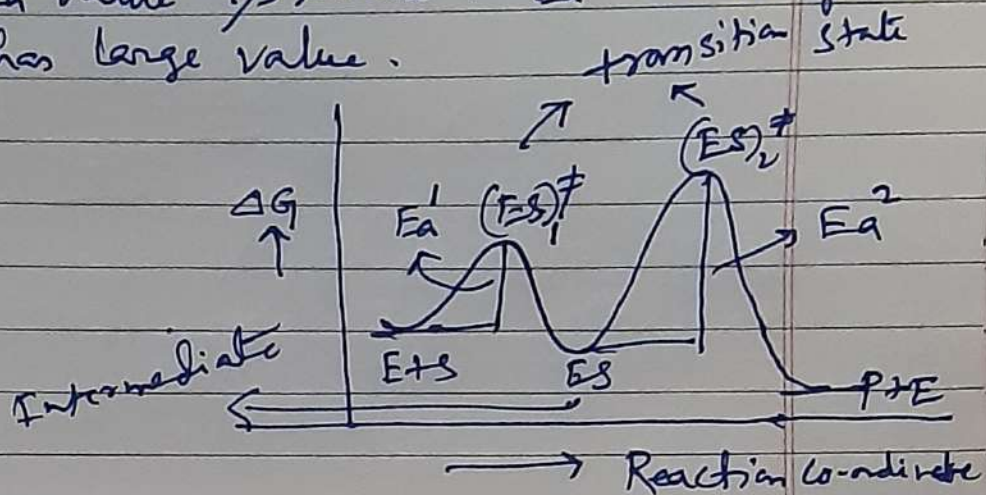 has large value.
transition state
(ES)₂‡
ΔG
Ea¹ (ES)₁‡
Ea²
E+S
ES
Intermediate
P+E
Reaction co-ordinate